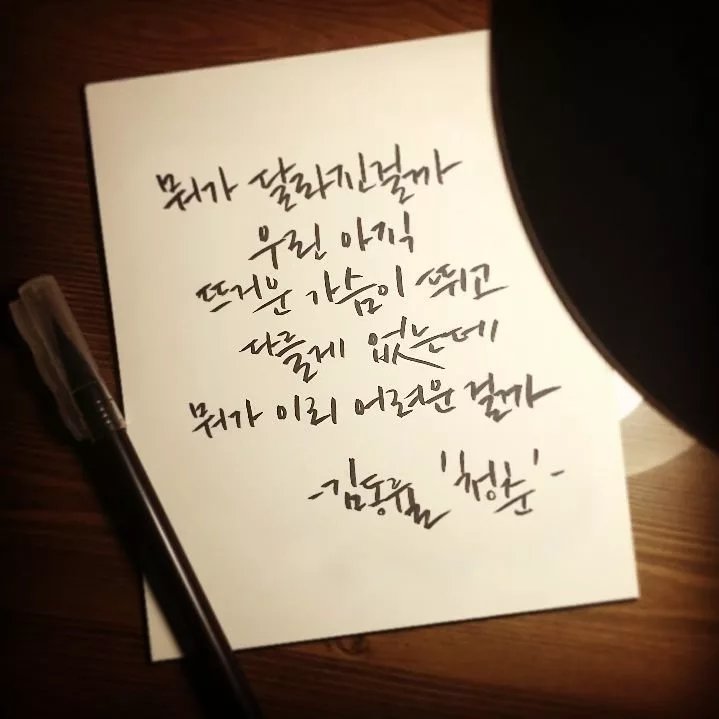 뭐가 달라진걸까
우린 아직
뜨거운 가슴이 뛰고
다를게 없는데
뭐가 이리 어려운 걸까
-김동률 '청춘'-